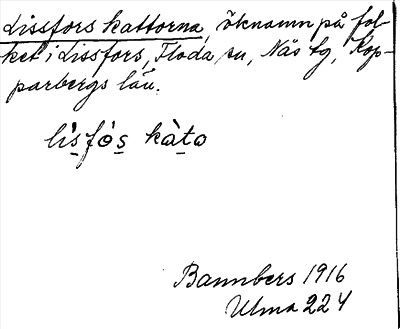 Lissfors kattorna, öknamn på fol-
ket i Lissfors, Floda sn, Näs tg, Kop-
parbergs län.
lisfòs kàto
Bannbers 1916
Ulma 224